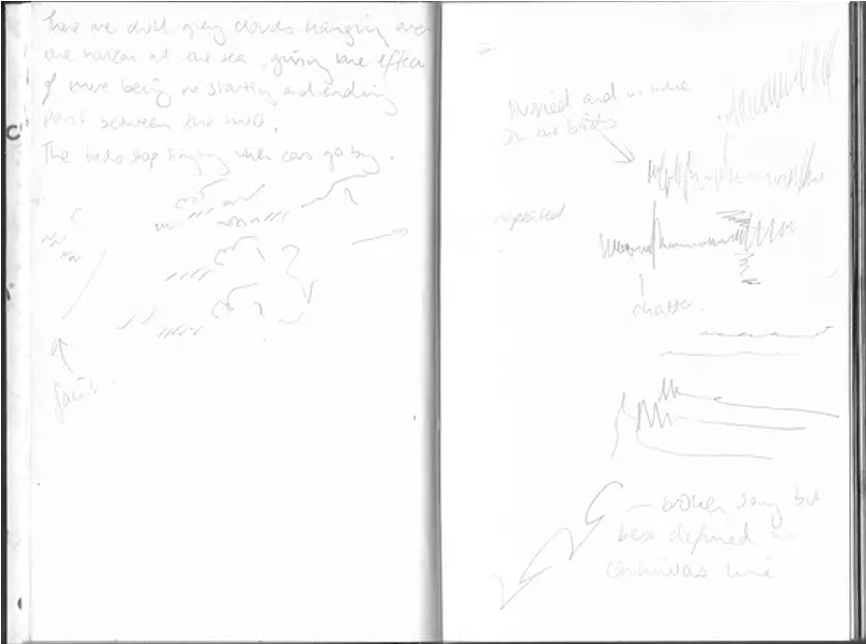 There are dull grey clouds hanging over
the horizon at the sea, giving the effect
of there being no starting and ending
point between the two.
The birds stop singing when cars go by.
faint.
Hurried and
on the birds
repeated
chatter.
— broken song but
best defined as
continuous line